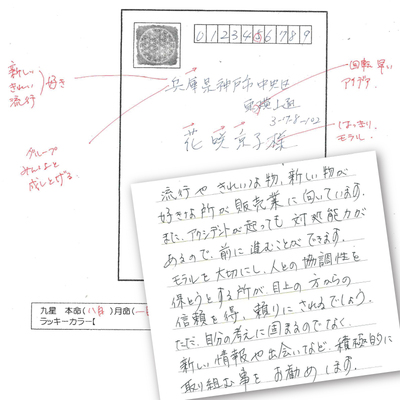 0123456789
新しい
きれい
流行
好き
兵庫県神戸市中央区
3-7-8-102
花咲京子様
回転早い
アイデア
はっきり
モラル
グループ
みんなと
成しとげる
九星 本命(八白)月命(一
ラッキーカラー【
流行やきれいな物、新しい物が
好きな所が販売業に向いています。
また、アクシデントが起っても対処能力が
あるので、前に進むことができます。
モラルを大切にし、人との協調性を
保とうとする所が目上の方からの
信頼を得、頼りにされるでしょう。
ただ、自分の考えに固まるのでなく、
新しい情報や出会いなど、積極的に
取り組む事をお勧めします。